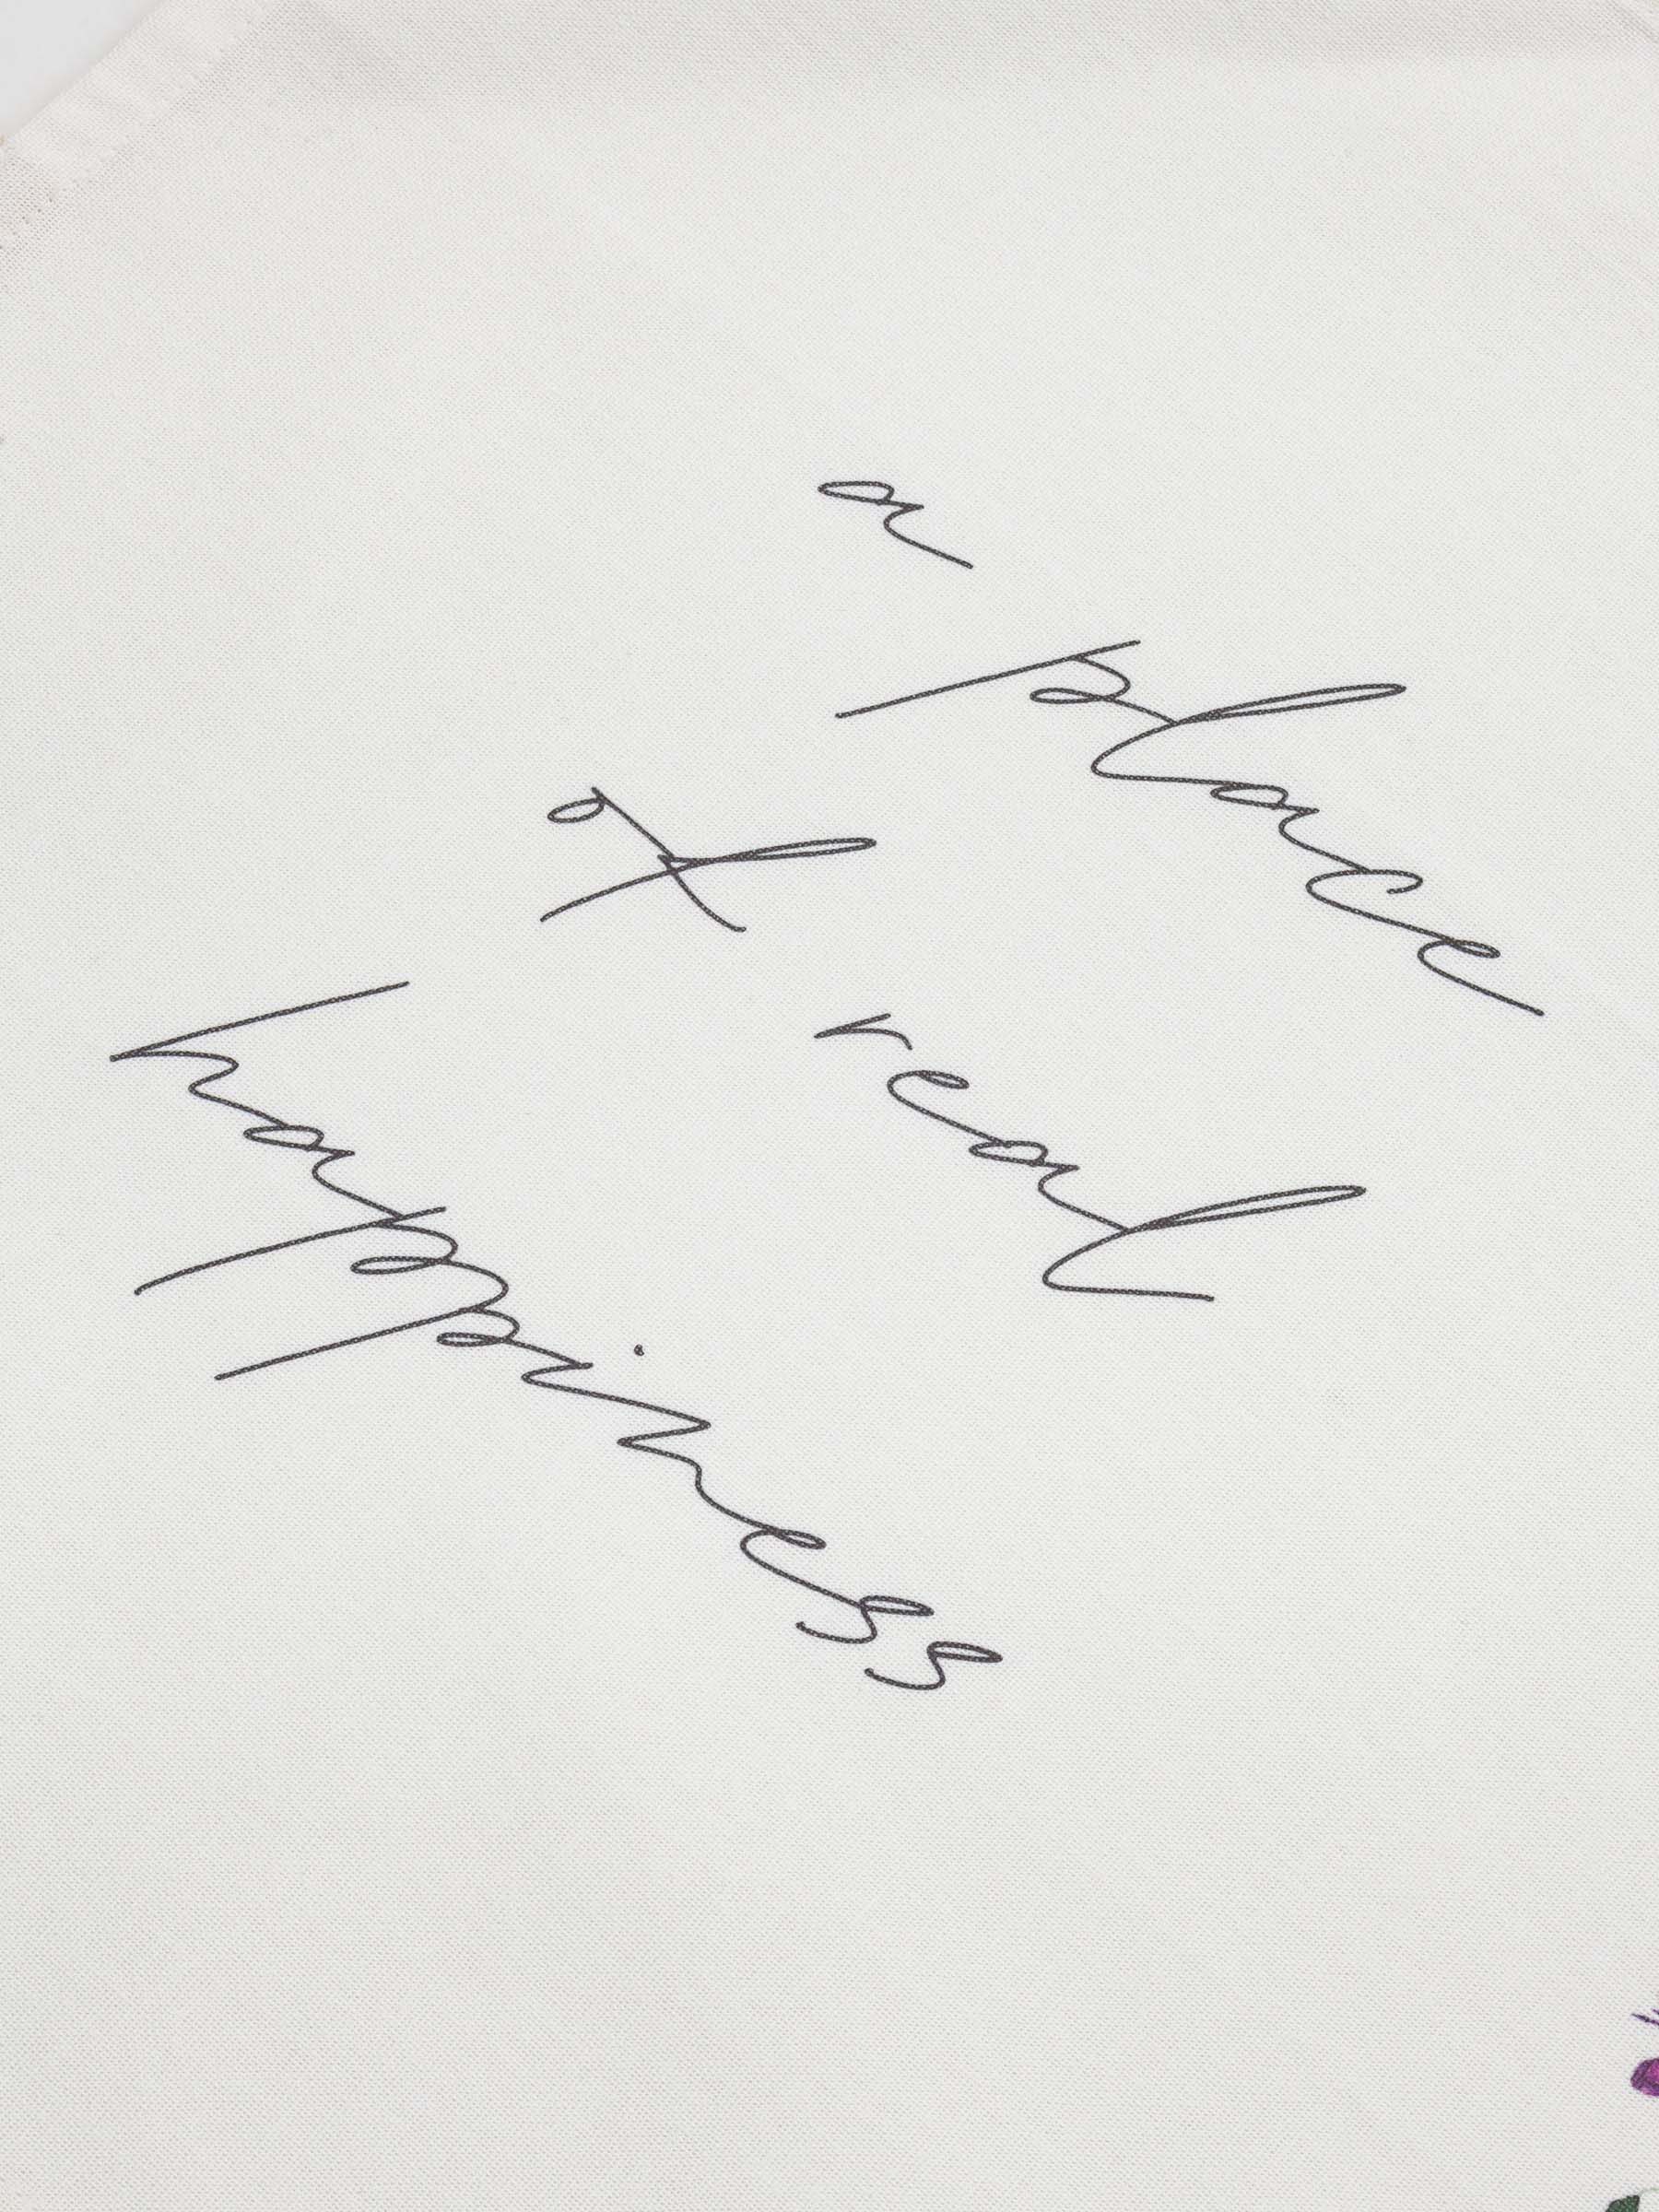 a place
of real
happiness